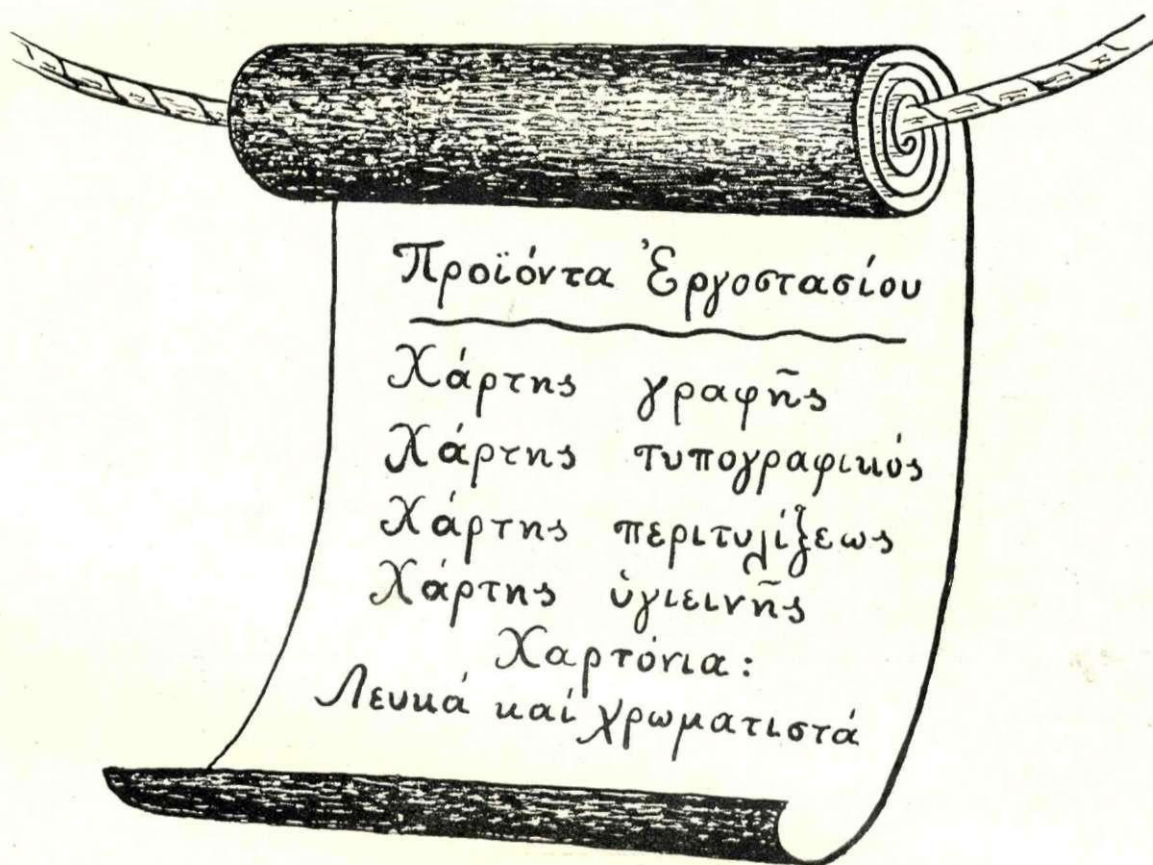 Προϊόντα Ἐργοστασίου
Χάρτης γραφῆς
Χάρτης τυπογραφικός
Χάρτης περιτυλίξεως
Χάρτης ὑγιεινῆς
Χαρτόνια:
Λευκά καί χρωματιστά